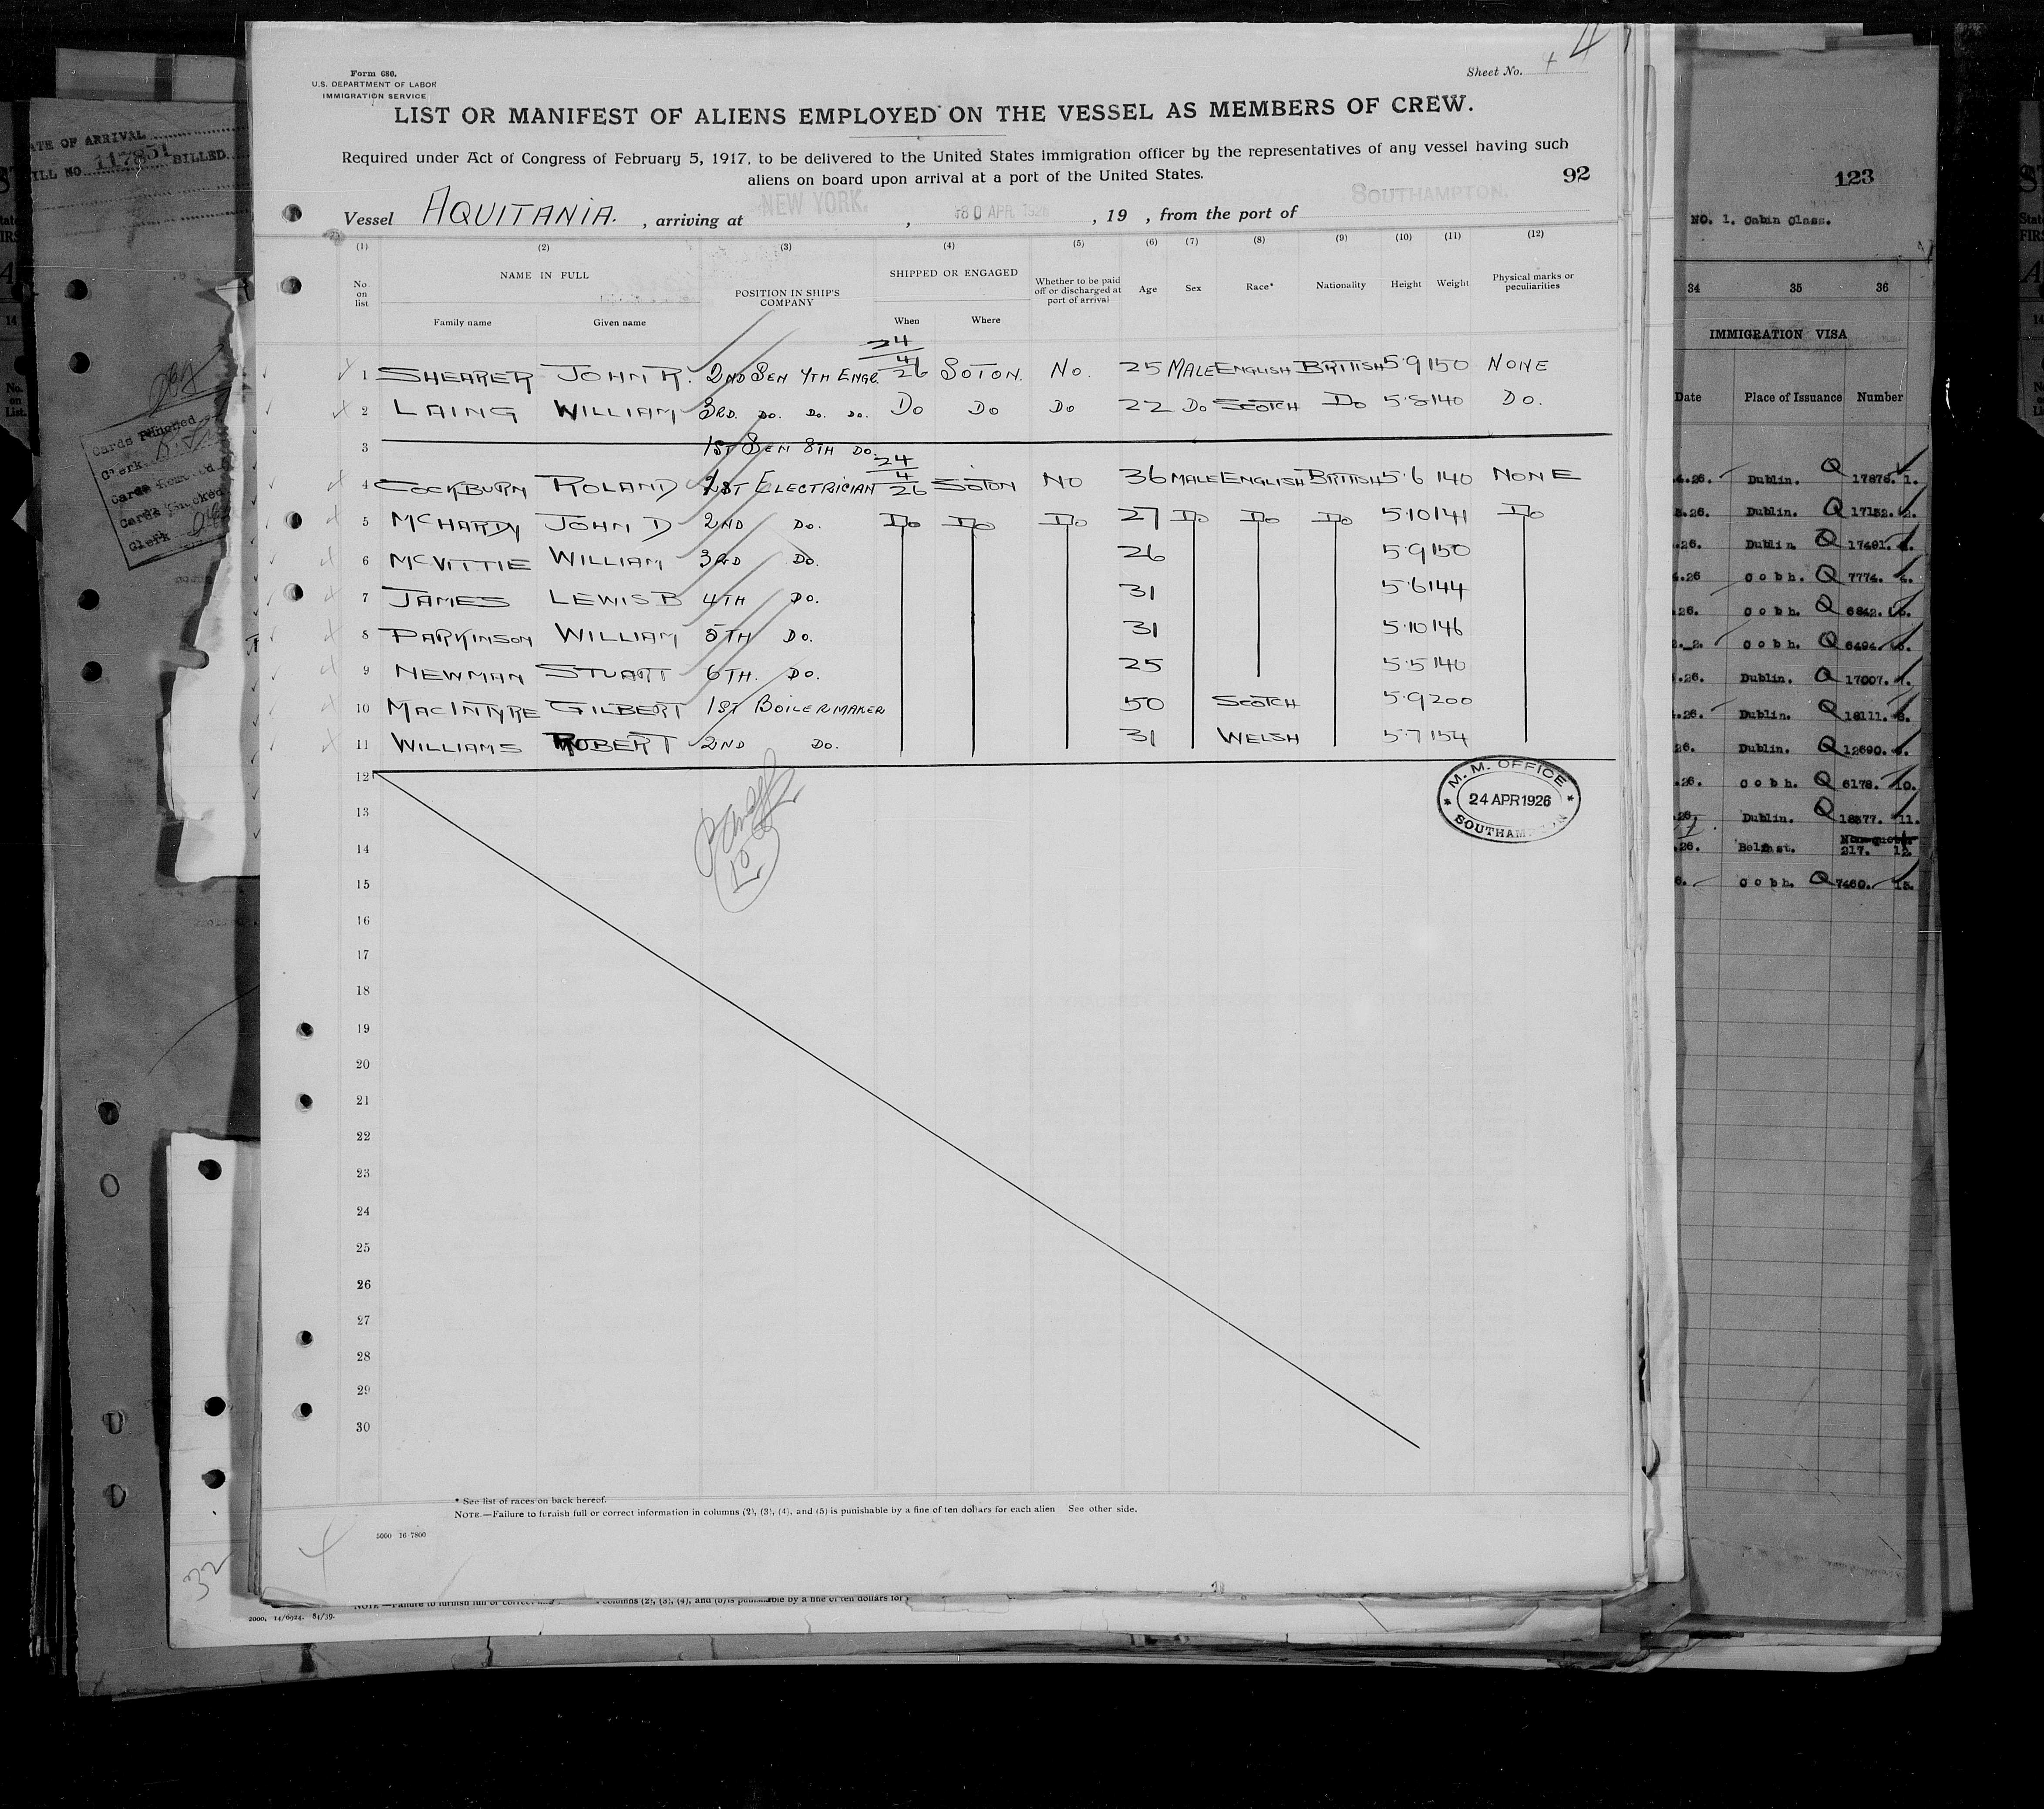 Form 680.
U.S. DEPARTMENT OF LABOR
IMMIGRATION SERVICE
Sheet No. 4
4
LIST OR MANIFEST OF ALIENS EMPLOYED ON THE VESSEL AS MEMBERS OF CREW.
Required under Act of Congress of February 5, 1917, to be delivered to the United States immigration officer by the representatives of any vessel having such
aliens on board upon arrival at a port of the United States.
92
Vessel AQUITANIA. , arriving at NEW YORK. , 30 APR 1926 , 19 , from the port of SOUTHAMPTON.
(1) (2) (3) (4) (5) (6) (7) (8) (9) (10) (11) (12)
No. on list NAME IN FULL Family name Given name POSITION IN SHIP'S COMPANY SHIPPED OR ENGAGED When Where Whether to be paid off or discharged at port of arrival Age Sex Race* Nationality Height Weight Physical marks or peculiarities
1 SHEARER JOHN R. 2ND SEN 4TH ENGR. 24/4/26 SOTON. NO. 25 MALE ENGLISH BRITISH 5·9 150 NONE
2 LAING WILLIAM 3RD. DO. DO. DO. DO DO DO 22 DO SCOTCH DO 5·8 140 DO.
3 1ST SEN 8TH DO.
4 COCKBURN ROLAND 1ST ELECTRICIAN 24/4/26 SOTON NO 36 MALE ENGLISH BRITISH 5·6 140 NONE
5 MCHARDY JOHN D 2ND DO. DO DO DO 27 DO DO DO 5·10 141 DO
6 MCVITTIE WILLIAM 3RD DO. 26 5·9 150
7 JAMES LEWIS B 4TH DO. 31 5·6 144
8 PARKINSON WILLIAM 5TH DO. 31 5·10 146
9 NEWMAN STUART 6TH. DO. 25 5·5 140
10 MACINTYRE GILBERT 1ST BOILERMAKER 50 SCOTCH 5·9 200
11 WILLIAMS ROBERT 2ND DO. 31 WELSH 5·7 154
12
M. M. OFFICE
24 APR 1926
SOUTHAMPTON
13
14
15
16
17
18
19
20
21
22
23
24
25
26
27
28
29
30
* See list of races on back hereof.
NOTE.—Failure to furnish full or correct information in columns (2), (3), (4), and (5) is punishable by a fine of ten dollars for each alien See other side.
5000 16 7800
32
2000. 14/6924. 84/39.
columns (2), (3), (4), and (5) is punishable by a fine of ten dollars for
ATE OF ARRIVAL
ILL NO 117851 BILLED
Cards Punched
Clerk
Cards Removed
Cards Checked
Clerk
123
NO. 1. Cabin Class.
34 35 36
IMMIGRATION VISA
Date Place of Issuance Number
.4.26. Dublin. Q 17878. 1.
.26. Dublin. Q 17152. 2.
.26. Dublin. Q 17491.
.26 Cobh. Q 7774. 4.
.26. Cobh. Q 6842. 5.
Cobh. Q 6494. 6.
.26. Dublin. Q 17007. 7.
.26. Dublin. Q 18111. 8.
26. Dublin. Q 12690. 9.
.26. Cobh. Q 6178. 10.
.26. Dublin. Q 18377. 11.
.26. Belfast. Non-quota 217. 12.
6. Cobh. Q 7460. 13.